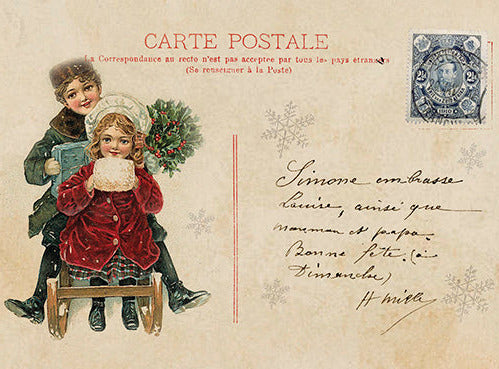 CARTE POSTALE
La Correspondance au recto n'est pas acceptée par tous les pays étrangers
(Se renseigner à la Poste)
Simone embrasse
Louise, ainsi que
maman et papa.
Bonne fête (à
Dimanche)